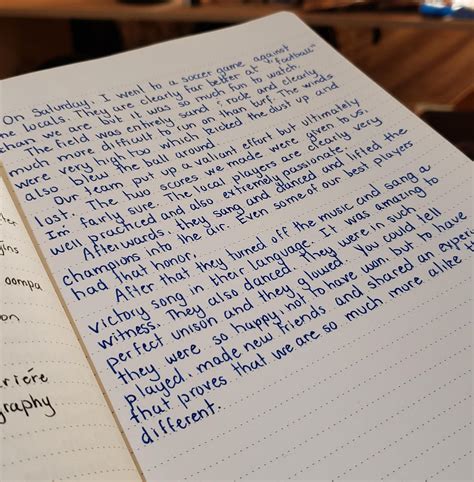 On Saturday, I went to a soccer game against
the locals. They are clearly far better at "football"
than we are but it was so much fun to watch.
The field was entirely sand & rock and clearly
much more difficult to run on than turf. The winds
were very high too which picked the dust up and
also blew the ball around.
Our team put up a valiant effort but ultimately
lost. The two scores we made were given to us.
I'm fairly sure. The local players are clearly very
well practiced and also extremely passionate.
Afterwards, they sang and danced and lifted the
champions into the air. Even some of our best players
had that honor.
After that they turned off the music and sang a
victory song in their language. It was amazing to
witness. They also danced. They were in such
perfect unison and they glowed. You could tell
they were so happy, not to have won, but to have
played, made new friends and shared an
that proves that we are so much more alike
different.
oompa
on
rière
graphy